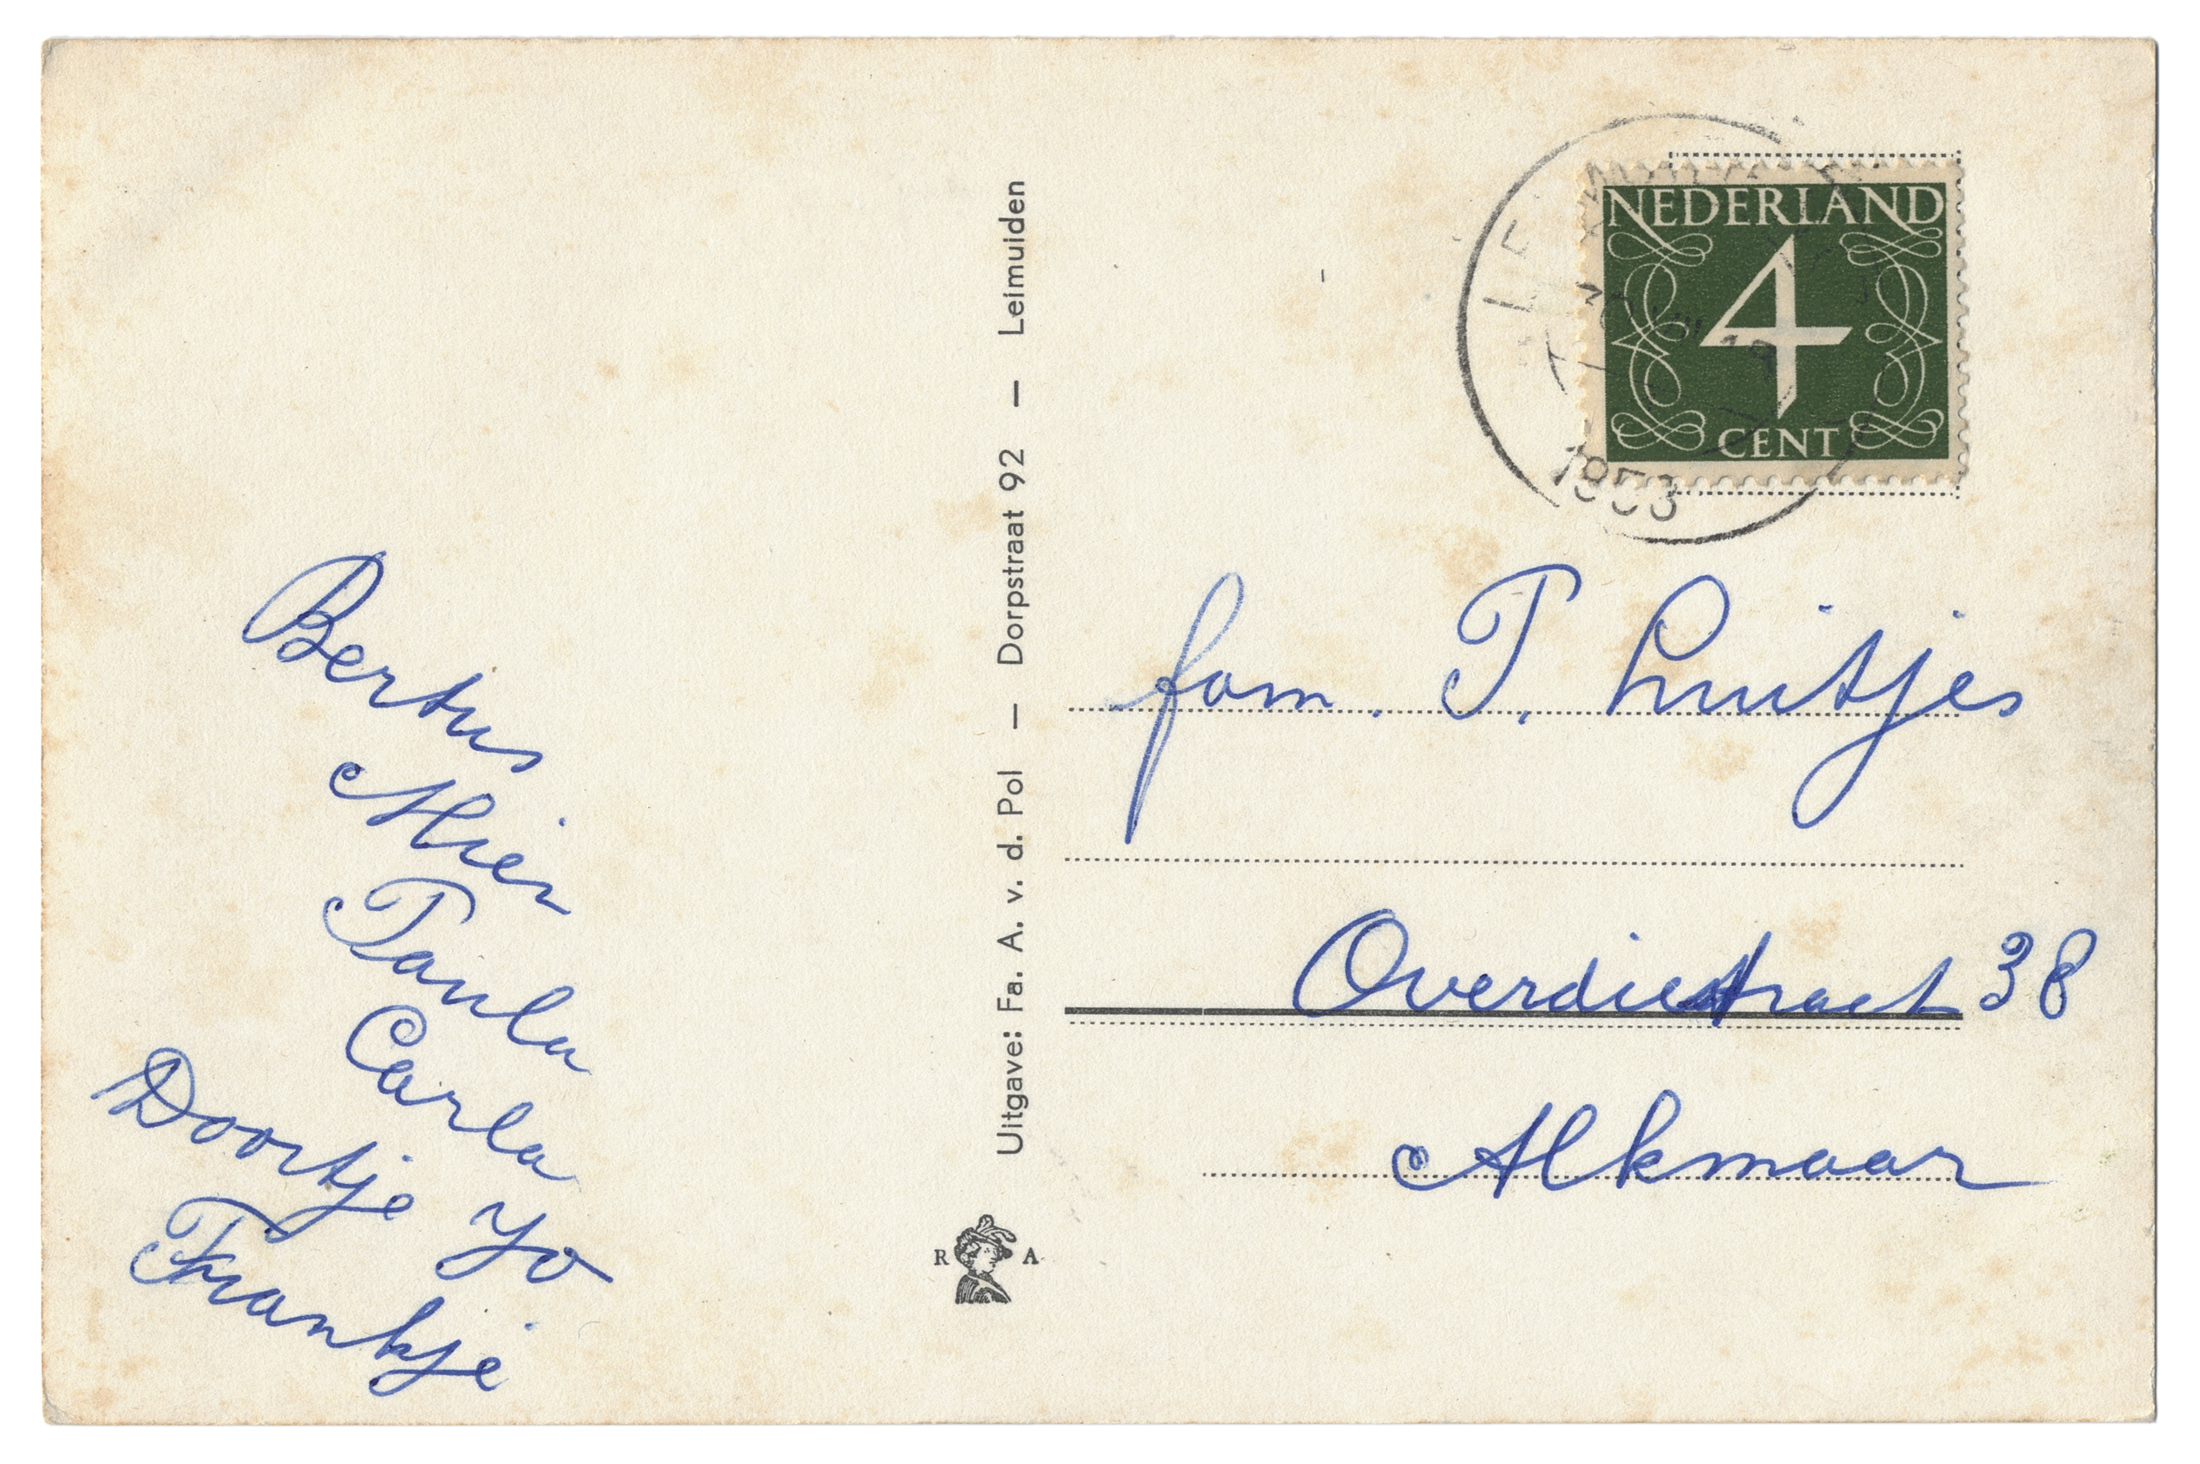 Bertus
Mien
Paula
Carla
Doortje Yo
Frankje
Uitgave: Fa. A. v. d. Pol — Dorpstraat 92 — Leimuiden
R A
NEDERLAND
4
CENT
1953
fam. T. Luitjes
Overdiestraat 38
Alkmaar